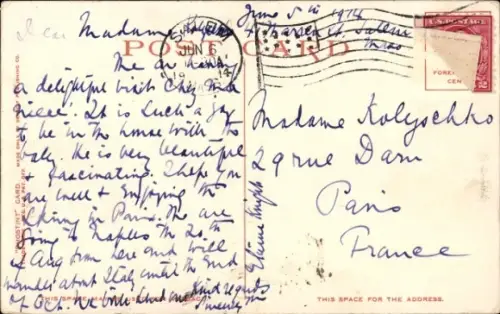 Dear Madame
June 5th 1914
Warren St. Salem
Mass
POST CARD
SALEM
JUN 6
1914
U.S. POSTAGE
We are having
a delightful visit Chez
niece. It is such a joy
to be in the house with the
baby. He is very beautiful
& fascinating. I hope you
are well & enjoying the
Spring in Paris. We are
going to Naples the 20th
of Aug from here and will
wander about Italy until the end
of Oct. We both send
kind regards
Madame Kolyschko
29 rue Daru
Paris
France
THIS SPACE FOR THE ADDRESS.